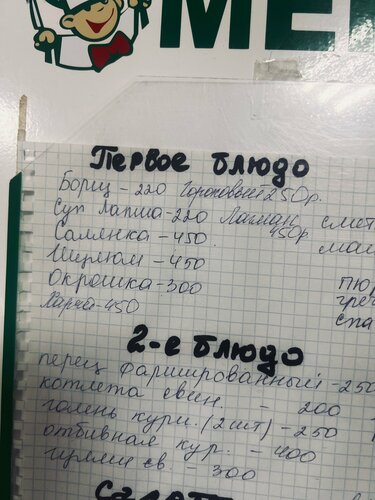 МЕ
Первое блюдо
Борщ - 220 Гороховый 250р.
Суп Лапша - 220 Лагман 450р
Салянка - 450
Шурпа - 450
Окрошка - 300
Харчо - 450
смет
мат
пюр
греч
спа
2-е блюдо
перец фаршированный - 250
котлета свин. - 200
голень кури. (2 шт) - 250
отбивная кур. - 400
гуляш св. - 300
Салат